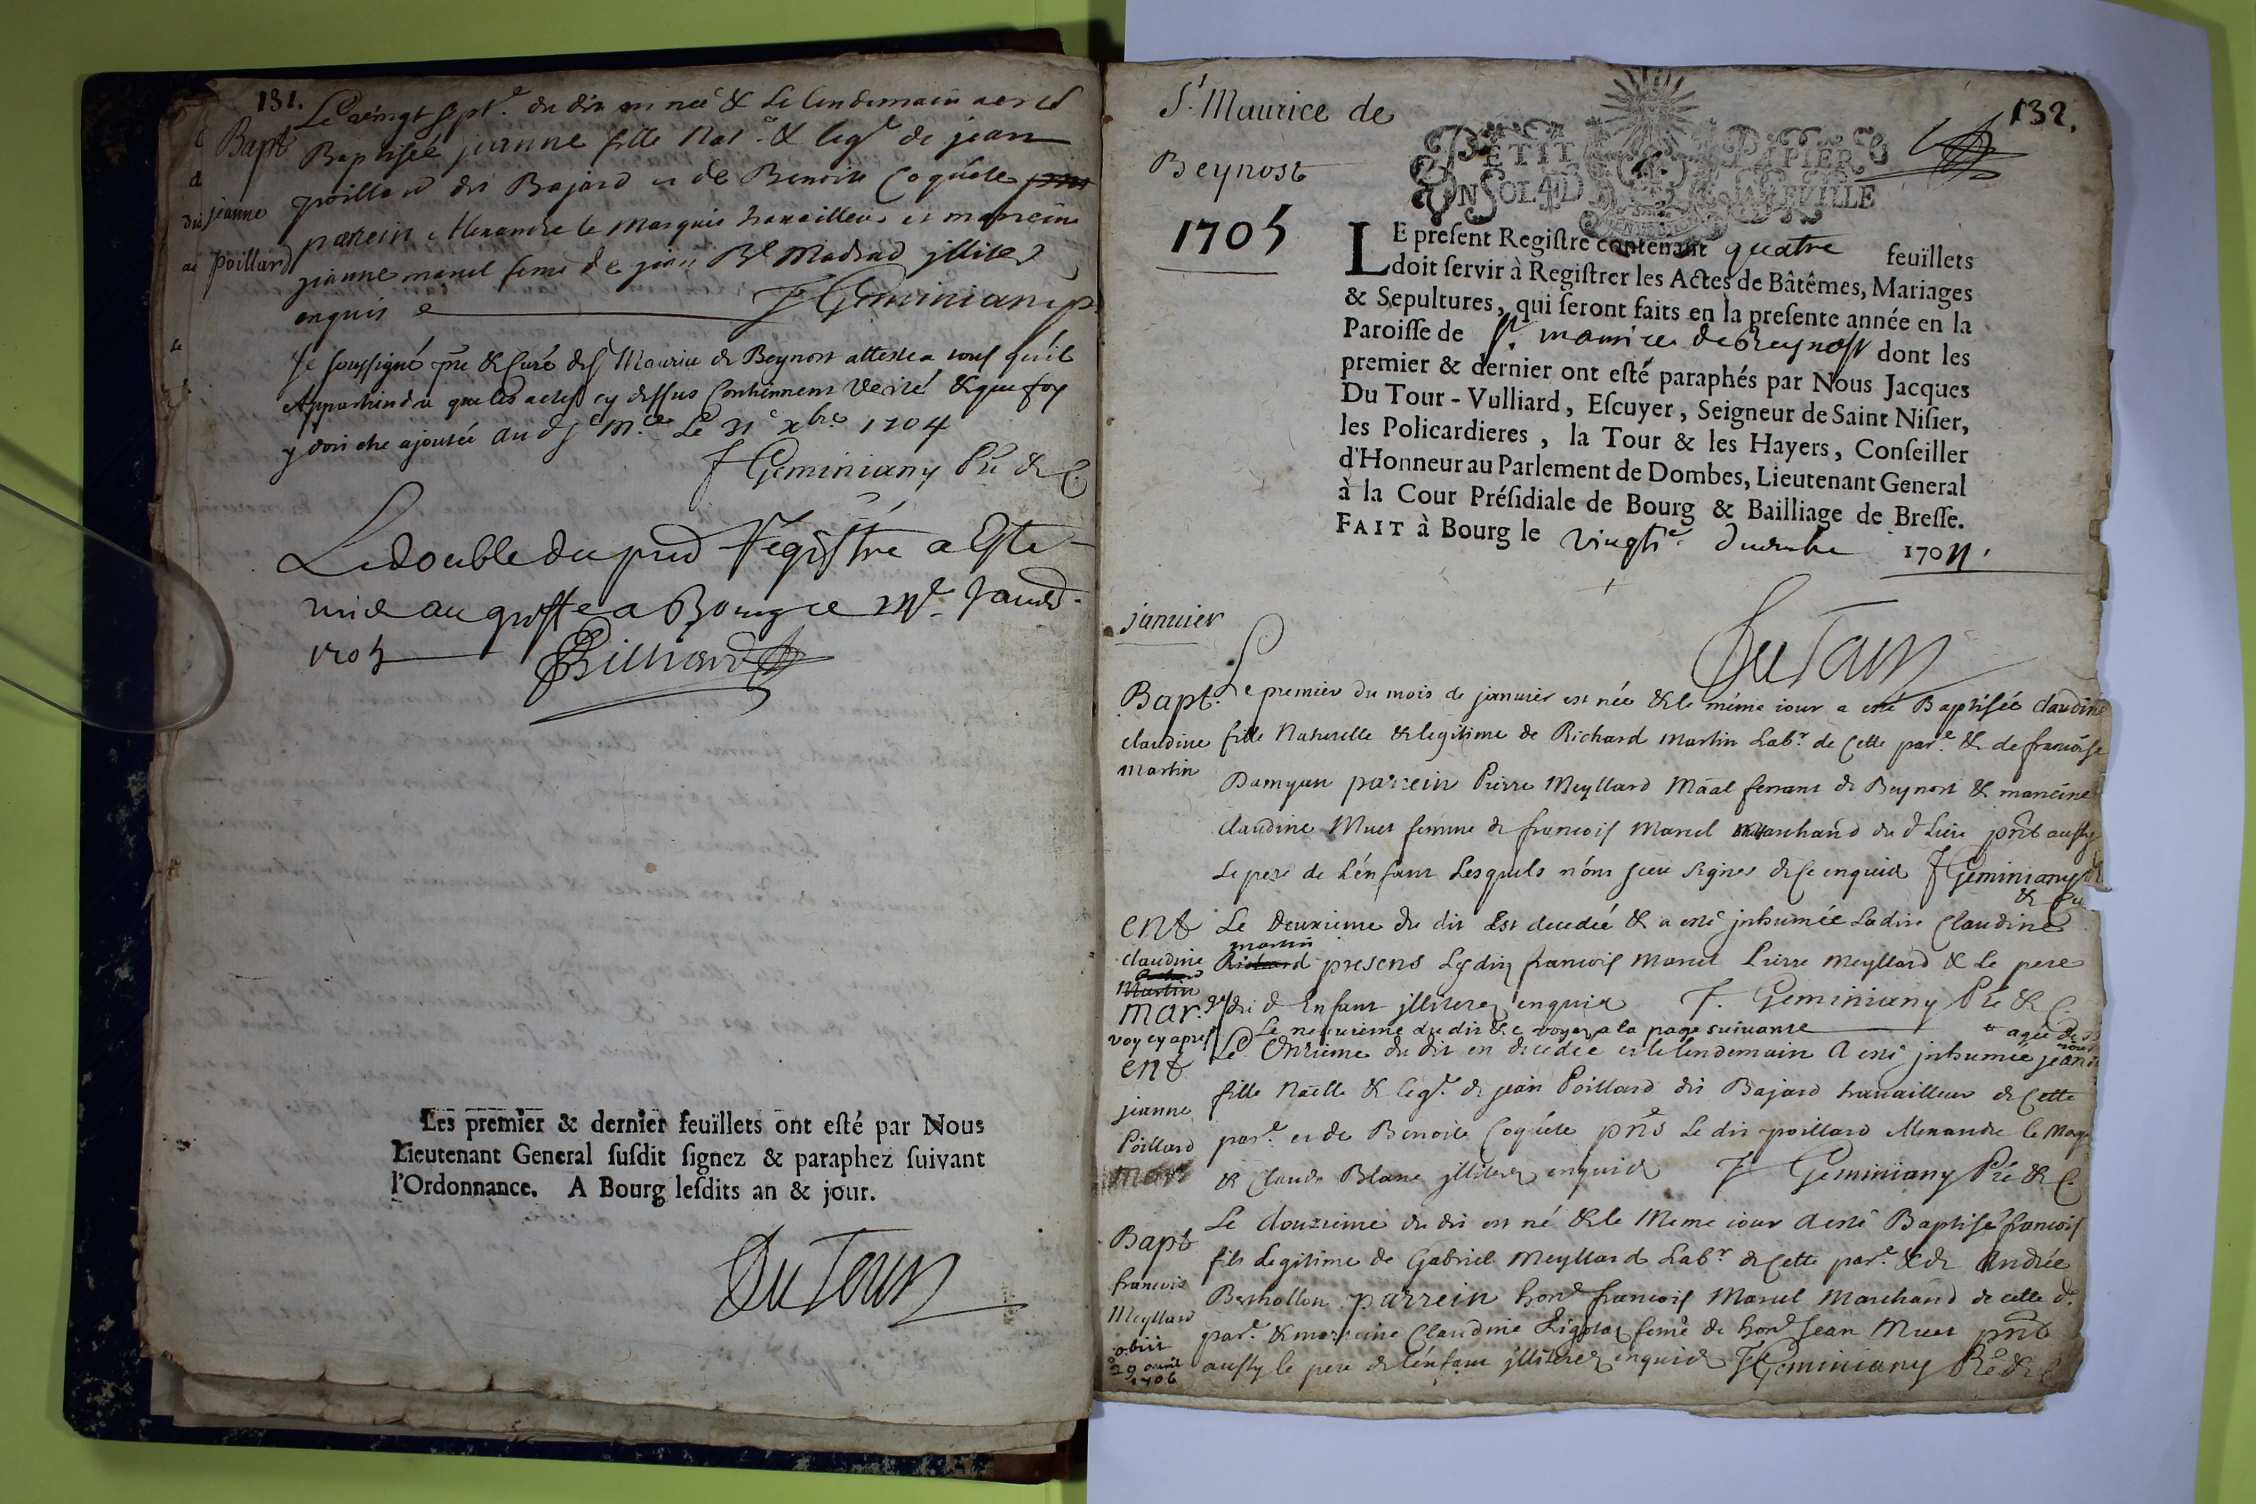 131.
Le vingt sept.e du dit en néé & Le lendemain a esté
Bapt Baptiséé jeanne fille Nat.e & leg.e de jean
jeanne poillard dit Bajard et de Benoite Coquéte
poillard parein Alexandre le Marquis travailleur et mareine
jeanne marcel feme de jean illiteré
enquis F Geminiany p.
Je soussigné pre & Curé de St Maurice de Beynost atteste a tous qu'il
Appartiendra que les actes cy dessus Contiennent Verité & que foy
y doit etre ajoutée au d St M.ce Le 31e xbre 1704
F Geminiany Pre & C.
Le double du pnt Registre a Este
mis au greffe a Bourg ce Janv.
1705 Billiard
Les premier & dernier feuillets ont esté par Nous
Lieutenant General susdit signez & paraphez suivant
l'Ordonnance. A Bourg lesdits an & jour.
Du Tour
132.
St Maurice de
Beynost
1705
PETIT PAPIER
UN SOL 4 D LA FEVILLE
LE present Registre contenant quatre feuillets
doit servir à Registrer les Actes de Bâtêmes, Mariages
& Sepultures, qui seront faits en la presente année en la
Paroisse de St. maurice de Breynost dont les
premier & dernier ont esté paraphés par Nous Jacques
Du Tour-Vulliard, Escuyer, Seigneur de Saint Nisier,
les Policardieres, la Tour & les Hayers, Conseiller
d'Honneur au Parlement de Dombes, Lieutenant General
à la Cour Présidiale de Bourg & Bailliage de Bresse.
FAIT à Bourg le vingtie decembre 1704.
Du Tour
janvier
Bapt. Le premier du mois de janvier est née & le méme iour a esté Baptiséé claudine
claudine fille Naturelle & legitime de Richard Martin Lab.r de Cette par.e & de francoise
Martin Damyan parrein Pierre Meyllard Maal ferrant de Beynost & mareine
claudine Muet femme de francois Marcel Marchand du d Lieu pnt aussy
Le pere de L'énfant Lesquels n'ont sceu signer de ce enquis F Geminiany Pre
& Cu
ent Le deuxieme du dit Est decedéé & a esté jnhumée Ladite Claudine
claudine martin presens Lesdits francois Marcel Pierre Meyllard & Le pere
Martin du d Enfant illiterez enquis F. Geminiany Pre & C.
mar. Le neuvieme du dit &c voyez a la page suivante
voy cy apres
ent Le Onzieme du dit en decedée et le lendemain A esté jnhumée jeanne
* agée de 15 jours
jeanne fille Naëlle & leg.e de jean Poillard dit Bajard travailleur de Cette
Poillard par.e et de Benoite Coquéte pns Le dit poillard Alexandre le Marq
mar & Claude Blanc illiterez enquis F Geminiany Pre & C.
Bapt Le douzieme du dit est né & le Meme iour A esté Baptisé francois
francois fils Legitime de Gabriel Meyllard Lab.r de Cette par.e & de Andrée
Meyllard Berthollon parrein hon.e francois Marcel Marchand de cette d.
obiit par.e & marreine Claudine Rigolet feme de hon.e Jean Muet pnt
29 avril 1706 aussy le pere de l'énfant illiterez enquis F Geminiany Pre & C